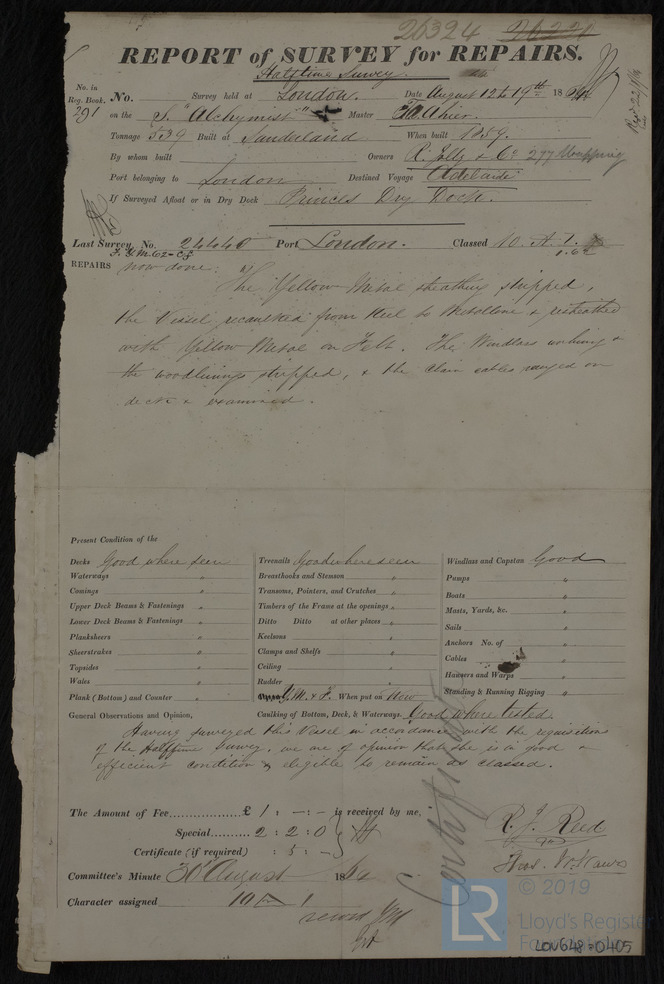 26324
REPORT of SURVEY for REPAIRS.
Halftime Survey.
No. in
Reg. Book.
291
No. Survey held at London. Date August 12 to 19th 1864
on the S. "Alchymist" Master
Tonnage 539 Built at Sunderland When built 1859.
By whom built Owners R. Jolly & Co 277 Wapping
Port belonging to London Destined Voyage Adelaide
If Surveyed Afloat or in Dry Dock Princes Dry Dock.
Last Survey No. 24440 Port London. Classed 10. A. 1.
REPAIRS now done:
The Yellow Metal sheathing stripped,
the Vessel recaulked from Keel to Metalline & resheathed
with Yellow Metal on Felt. The Windlass unhung &
the woodlinings stripped, & the chain cables ranged on
deck & examined.
Present Condition of the
Decks Good where seen
Waterways "
Comings "
Upper Deck Beams & Fastenings "
Lower Deck Beams & Fastenings "
Planksheers "
Sheerstrakes "
Topsides "
Wales "
Plank (Bottom) and Counter "
Treenails Good where seen
Breasthooks and Stemson "
Transoms, Pointers, and Crutches "
Timbers of the Frame at the openings "
Ditto Ditto at other places "
Keelsons "
Clamps and Shelfs "
Ceiling "
Rudder "
Y. M. & F. When put on Now
Caulking of Bottom, Deck, & Waterways. Good where tested.
Windlass and Capstan Good
Pumps "
Boats "
Masts, Yards, &c. "
Sails "
Anchors No. of "
Cables "
Hawsers and Warps "
Standing & Running Rigging "
General Observations and Opinion,
Having surveyed this Vessel in accordance with the requisitions
of the Halftime Survey, we are of opinion that she is in good &
efficient condition & eligible to remain as classed.
Certificate
The Amount of Fee £ 1 : - : - is received by me,
Special 2 : 2 : 0
Certificate (if required) : 5 : -
R. J. Reed
Committee's Minute 30 August 186
Character assigned 10 A 1
© 2019
LR
Lloyd's Register
Foundation
LON648-0405